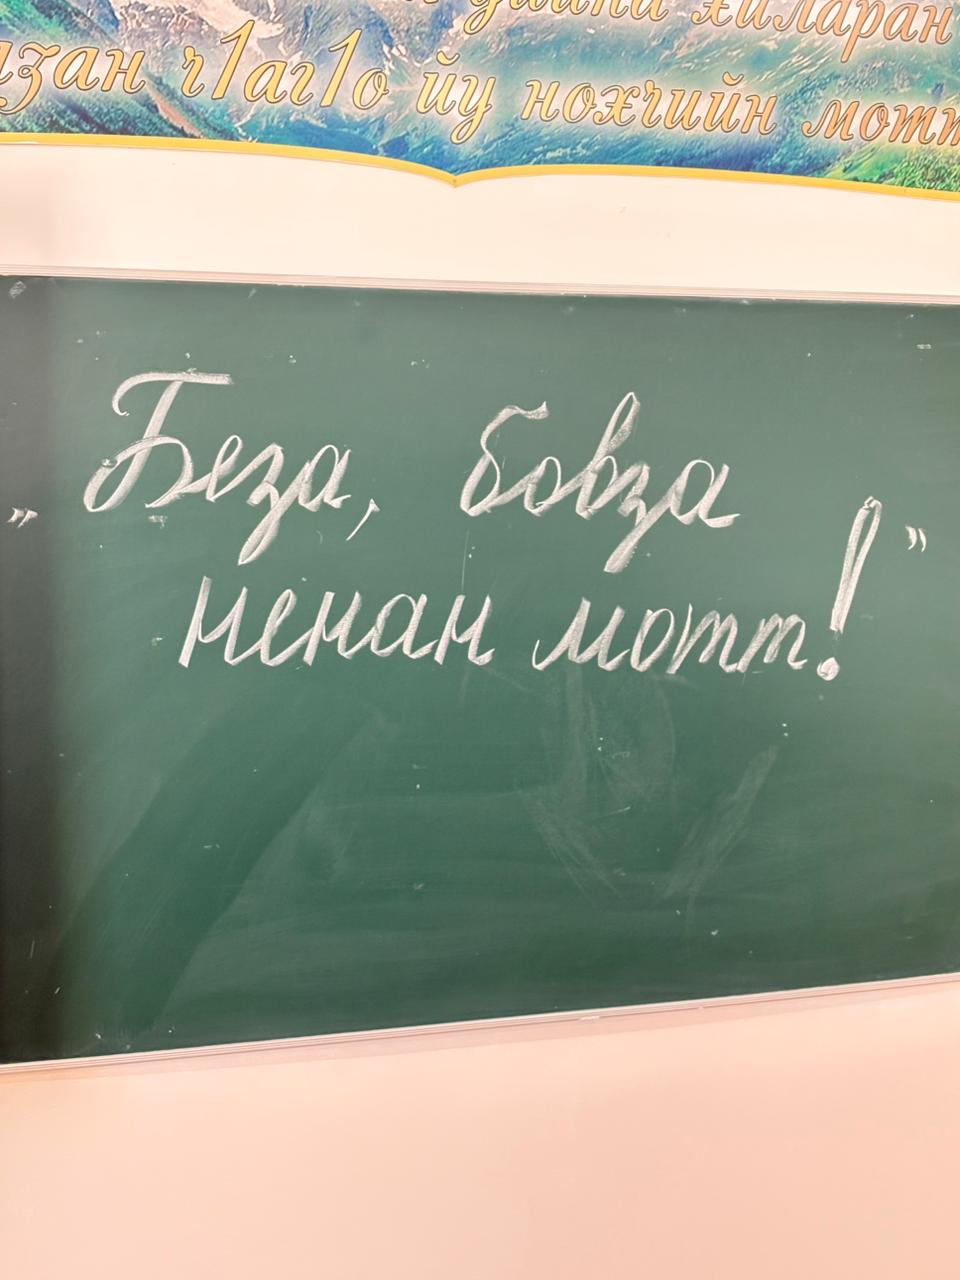 хиларан
ч1аг1о йу нохчийн мотт
„Беза, бовза
ненан мотт!”